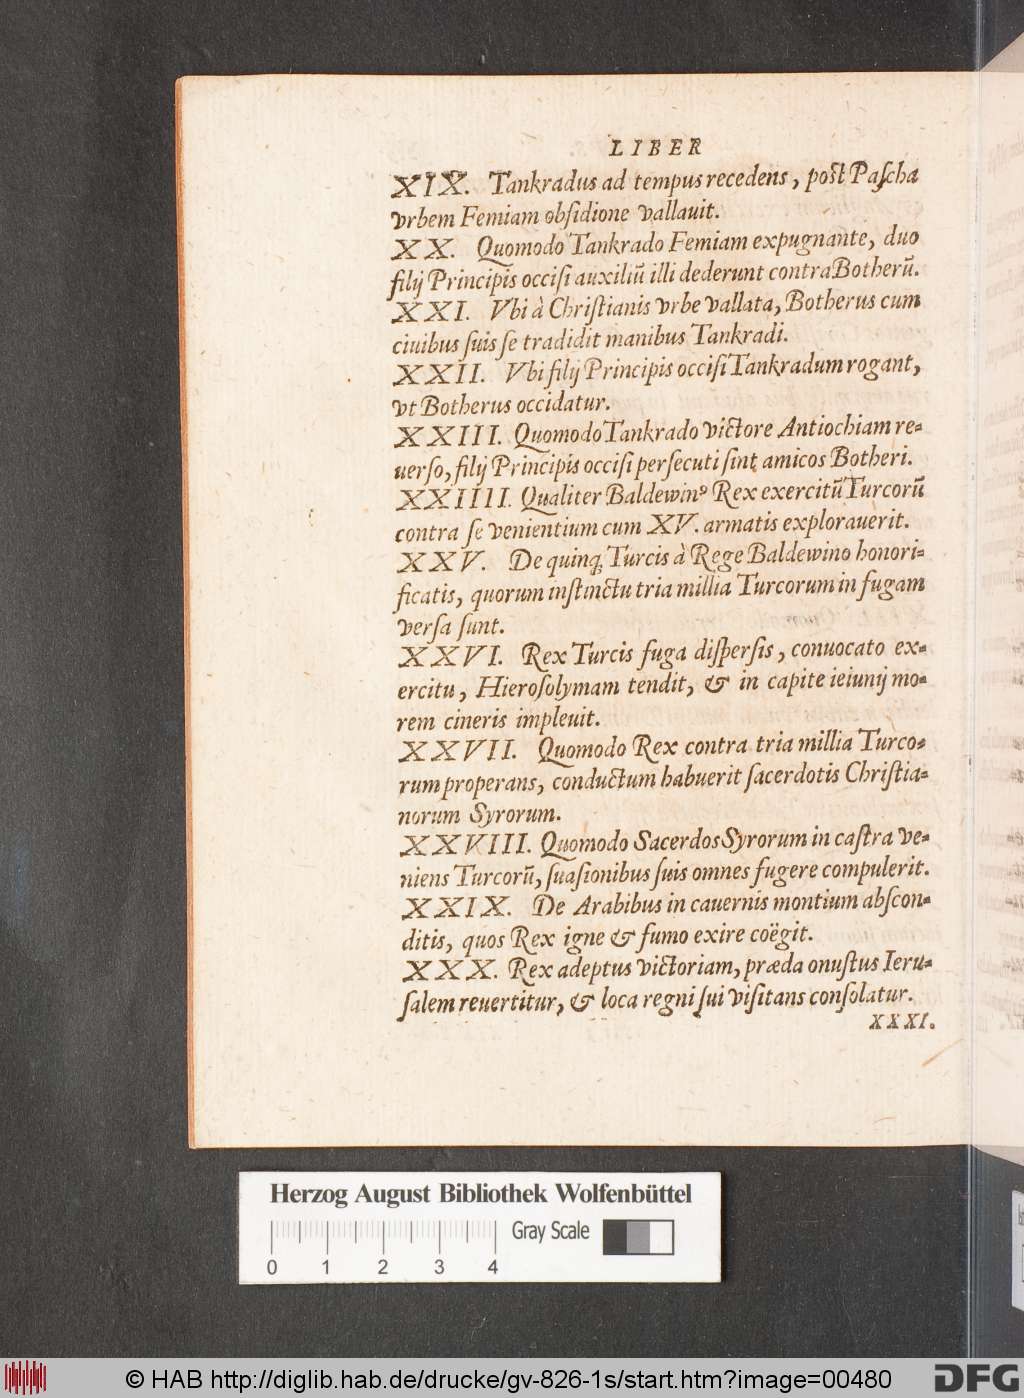 LIBER
XIX. Tankradus ad tempus recedens, post Pascha
vrbem Femiam obsidione vallauit.
XX. Quomodo Tankrado Femiam expugnante, duo
filij Principis occisi auxiliũ illi dederunt contra Botherũ.
XXI. Vbi à Christianis vrbe vallata, Botherus cum
ciuibus suis se tradidit manibus Tankradi.
XXII. Vbi filij Principis occisi Tankradum rogant,
vt Botherus occidatur.
XXIII. Quomodo Tankrado victore Antiochiam re-
uerso, filij Principis occisi persecuti sint amicos Botheri.
XXIIII. Qualiter Baldewinꝰ Rex exercitũ Turcorũ
contra se venientium cum XV. armatis explorauerit.
XXV. De quinq; Turcis à Rege Baldewino honori-
ficatis, quorum instinctu tria millia Turcorum in fugam
versa sunt.
XXVI. Rex Turcis fuga dispersis, conuocato ex-
ercitu, Hierosolymam tendit, & in capite ieiunij mo-
rem cineris impleuit.
XXVII. Quomodo Rex contra tria millia Turco-
rum properans, conductum habuerit sacerdotis Christia-
norum Syrorum.
XXVIII. Quomodo Sacerdos Syrorum in castra ve-
niens Turcorũ, suasionibus suis omnes fugere compulerit.
XXIX. De Arabibus in cauernis montium abscon-
ditis, quos Rex igne & fumo exire coëgit.
XXX. Rex adeptus victoriam, præda onustus Ieru-
salem reuertitur, & loca regni sui visitans consolatur.
XXXI.
Herzog August Bibliothek Wolfenbüttel
Gray Scale
0 1 2 3 4
© HAB http://diglib.hab.de/drucke/gv-826-1s/start.htm?image=00480
DFG